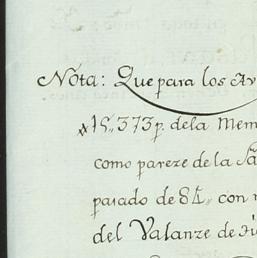 Nota: Que para los Av
15,,373p. dela Mem
como pareze de la Sa
pasado de 84,, con
del Valanze de